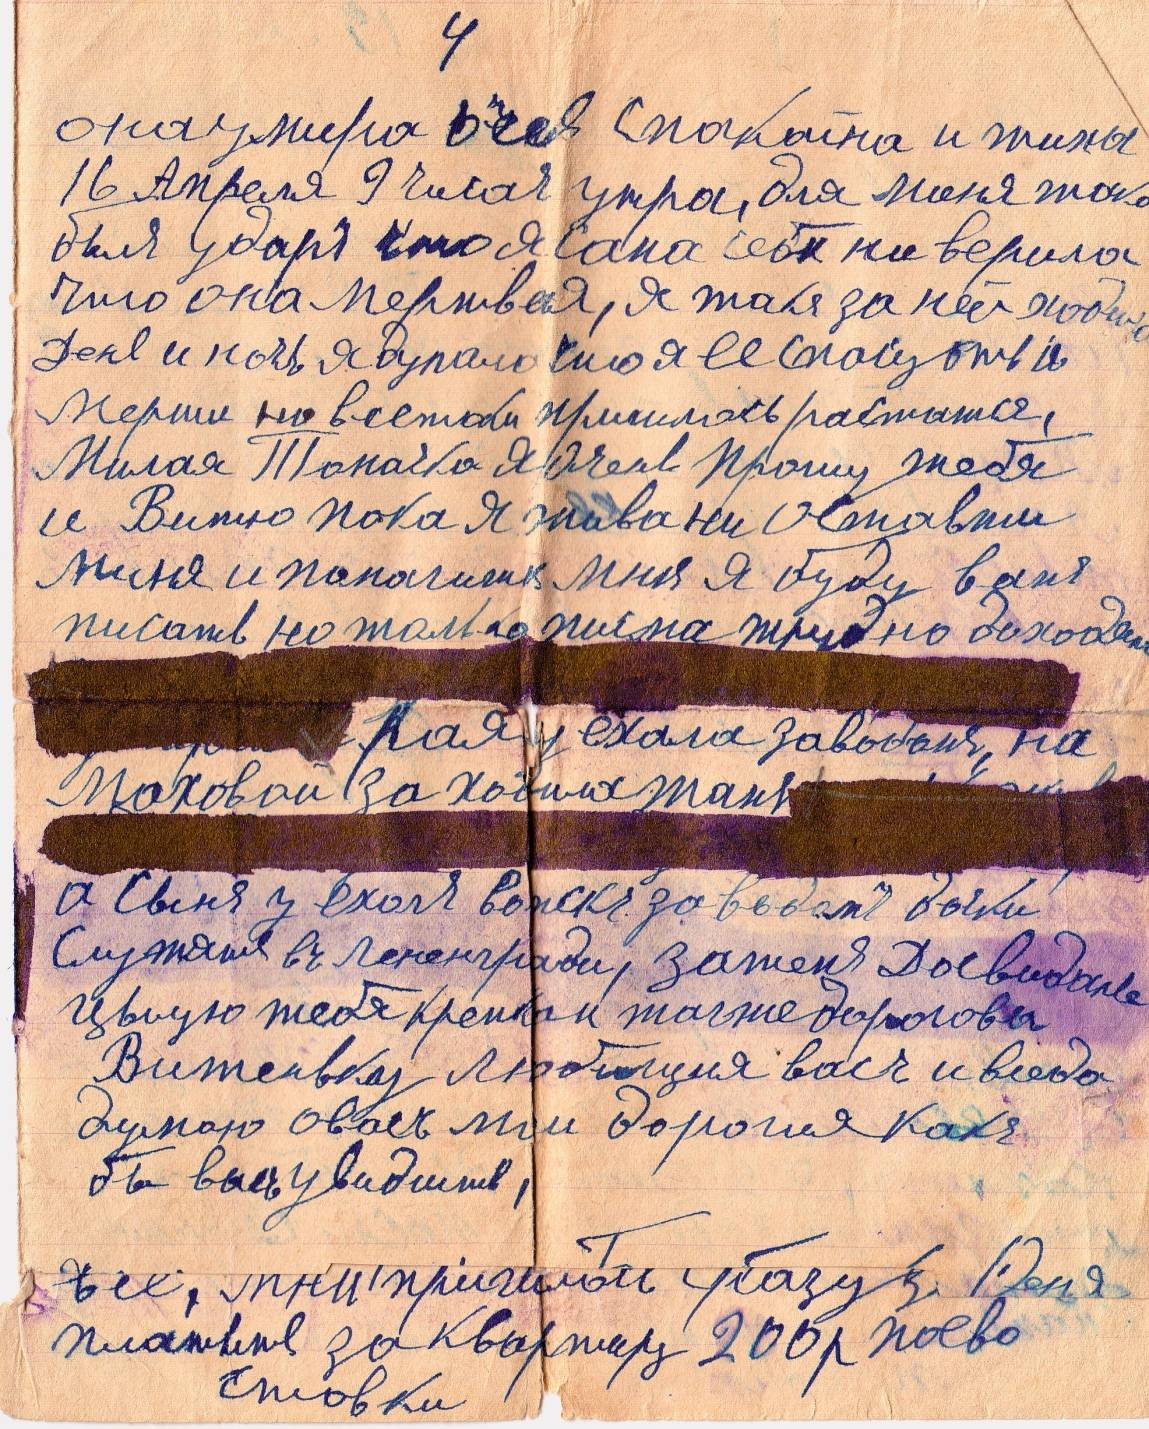 4
она умира очея Спакойна и тихы
16 Апреля 9 часач утра, для меня тако
былъ ударъ что я Сама себя ни верила
что она Мертвая, я такъ за ней ходила
День и ночь я думала что я ее спасу отъ
Мерти но всетаки пришлось растатся,
Милая Томачка я очень прошу тебя
и Витю пока я жива ни оставти
Миня и помагитя Мня я буду вамъ
писать но толька писма трудно доходят
Рая уехала заводомъ, на
Маховой за хозяина Таня
а Сынъ уехалъ воискъ заводомъ дочки
Служатъ въ Лененгради, затемъ Досвидание
Цылую тебя крепко и также дорогова
Витеньку любящия васъ и всегда
думаю овасъ мои дорогия какъ
бы васъ увидить,
ъее, мни причилоть Деня
платить за квартиру 200р поево
Стовки